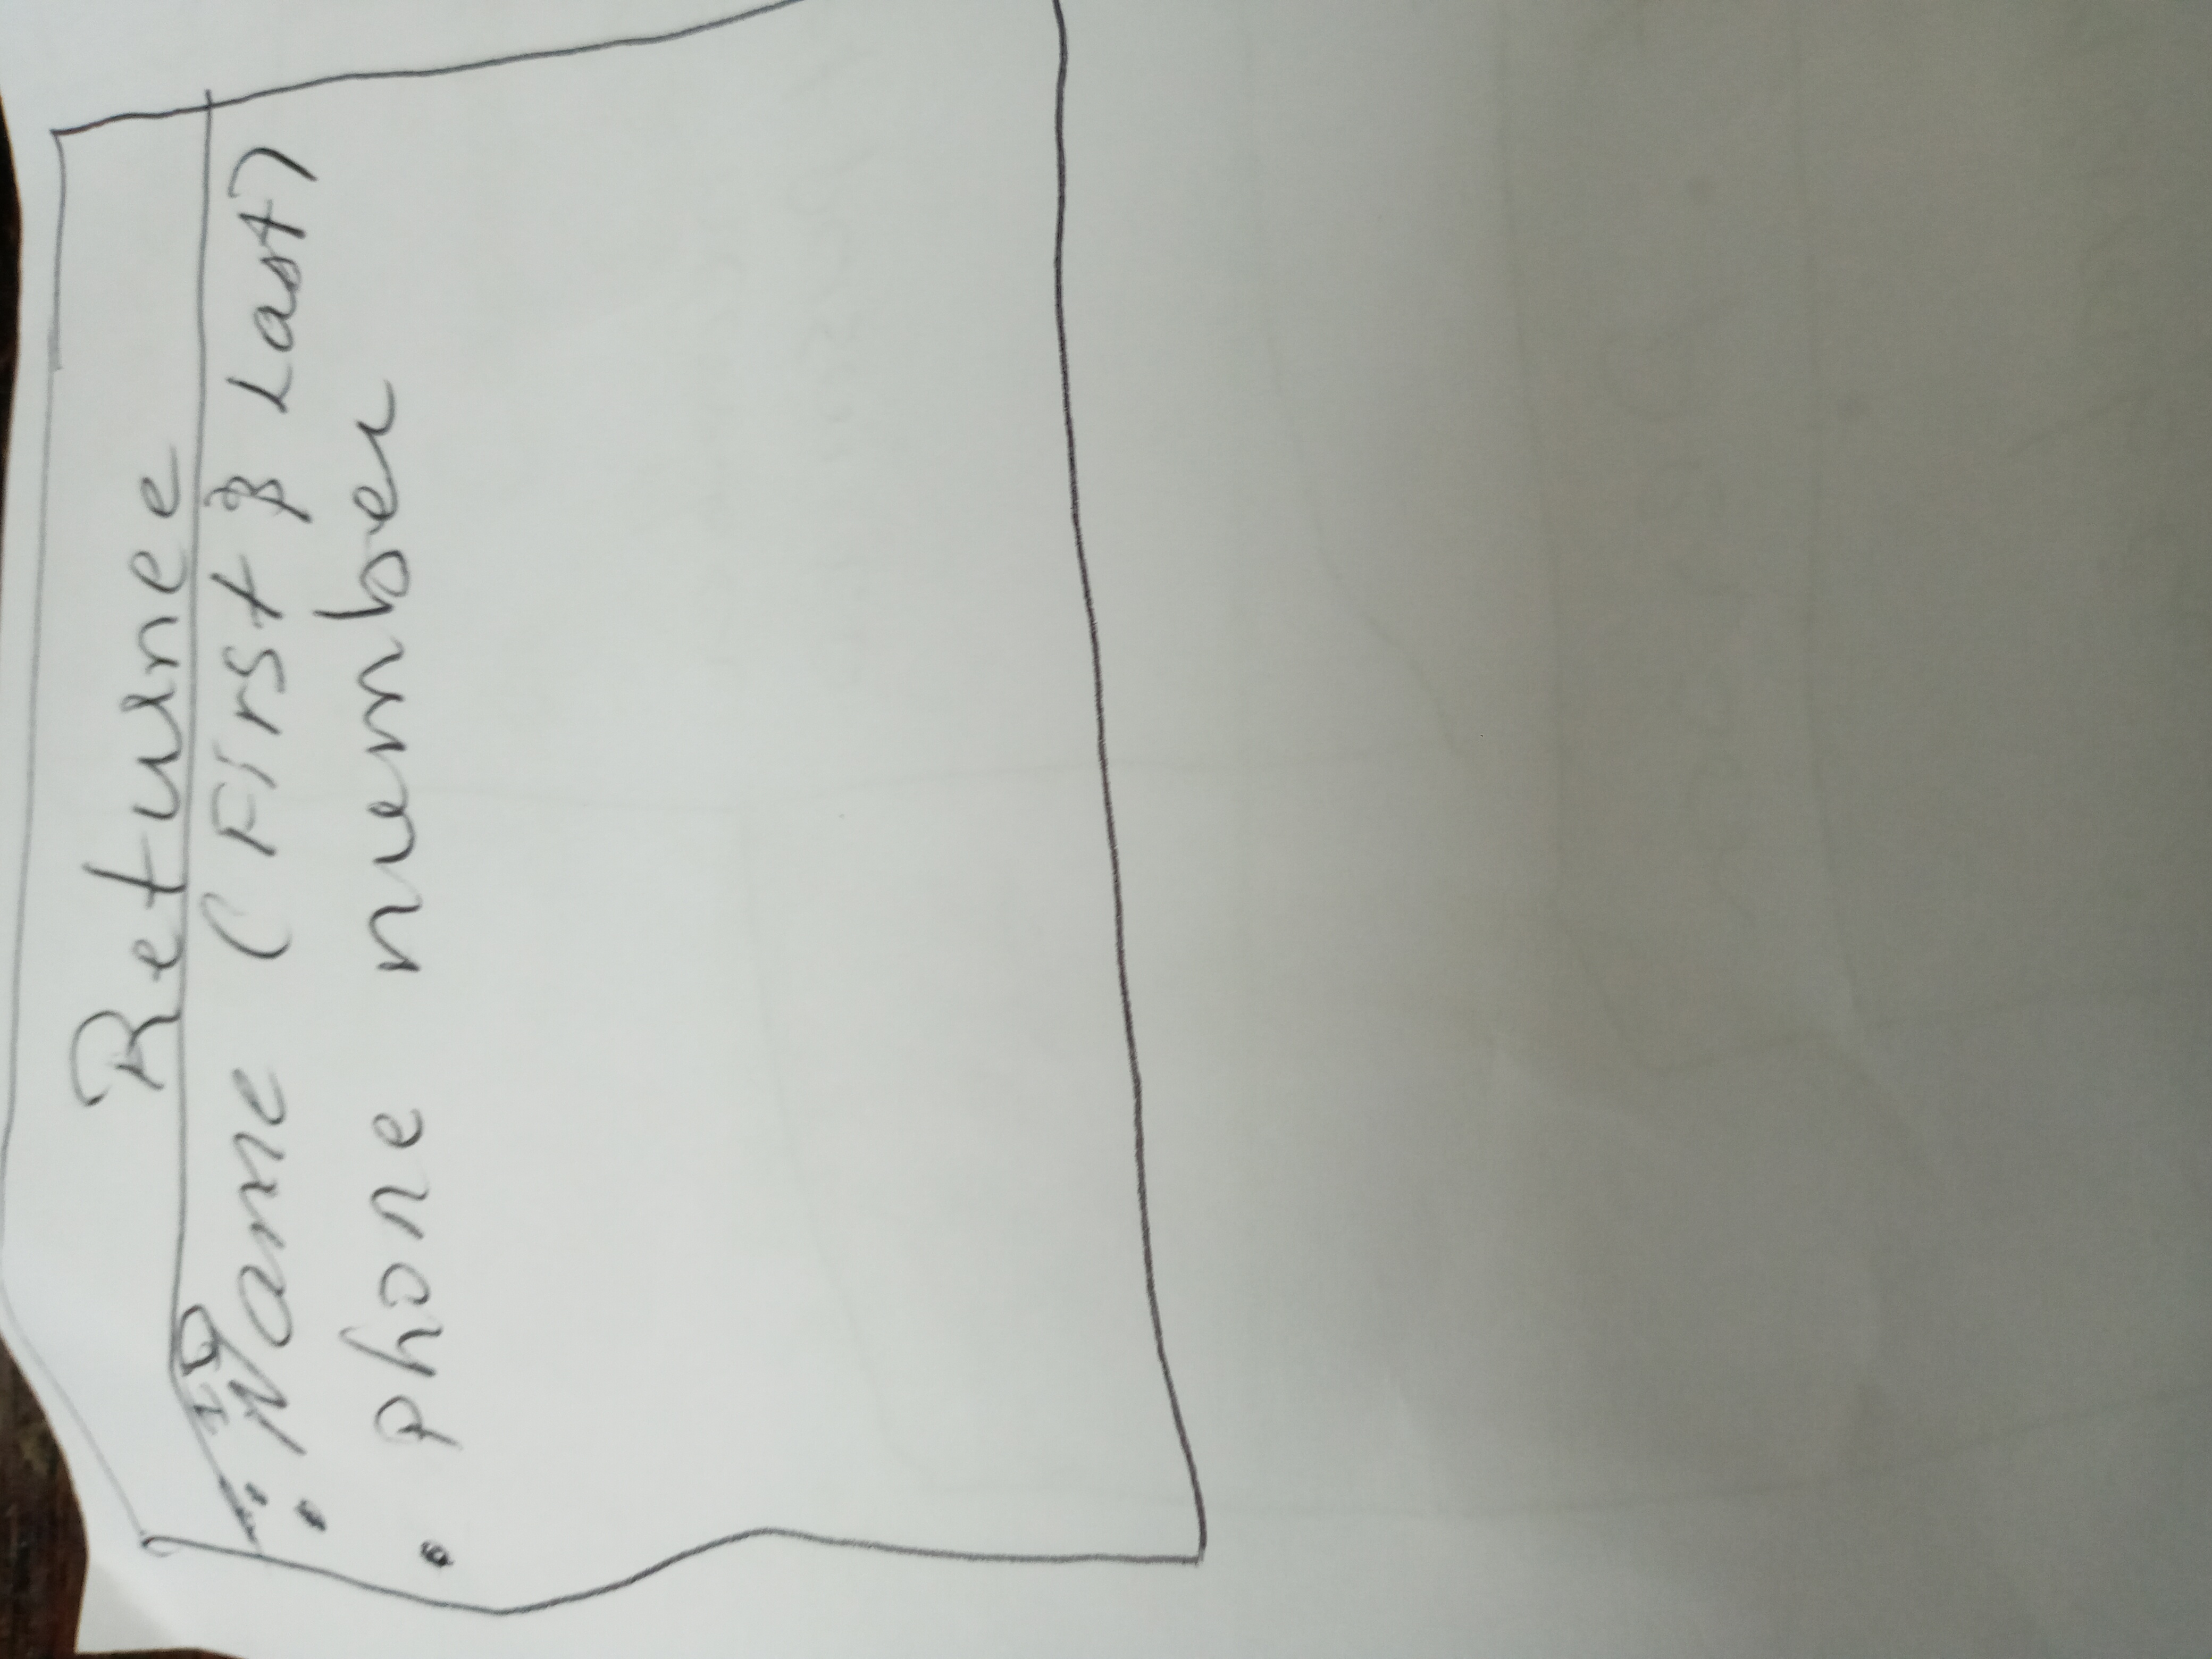 Returnee
• ID
• Name (First & Last)
• phone number